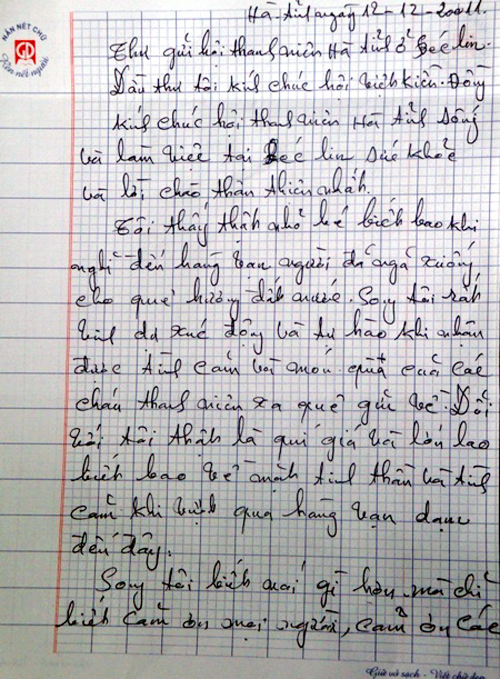 NẮN NÉT CHỮ
Rèn nết người
Hà-Tĩnh ngày 12-12-20011.
Thư gửi hội thanh niên Hà Tĩnh ở Béc lin.
Đầu thư tôi kính chúc hội việt kiền. Đồng
kính chúc hội thanh niên Hà Tĩnh sống
và làm việc tại Béc lin sức khỏe
và lời chào thân thiên nhất.
Tôi thấy thật nhỏ bé biết bao khi
nghĩ đến hàng vạn người đã ngã xuống
cho quê hương đất nước. Song tôi rất
vinh dự xúc động và tự hào khi nhận
được tình cảm và món quà của các
cháu thanh niên xa quê gửi về. Đối
với tôi thật là quí giá và lớn lao
biết bao về mặt tinh thần và tình
cảm khi vượt qua hàng vạn dạm
đến đây.
Song tôi biết nói gì hơn mà chỉ
biết cảm ơn mọi người, cảm ơn các
Giữ vở sạch - Viết chữ đẹp